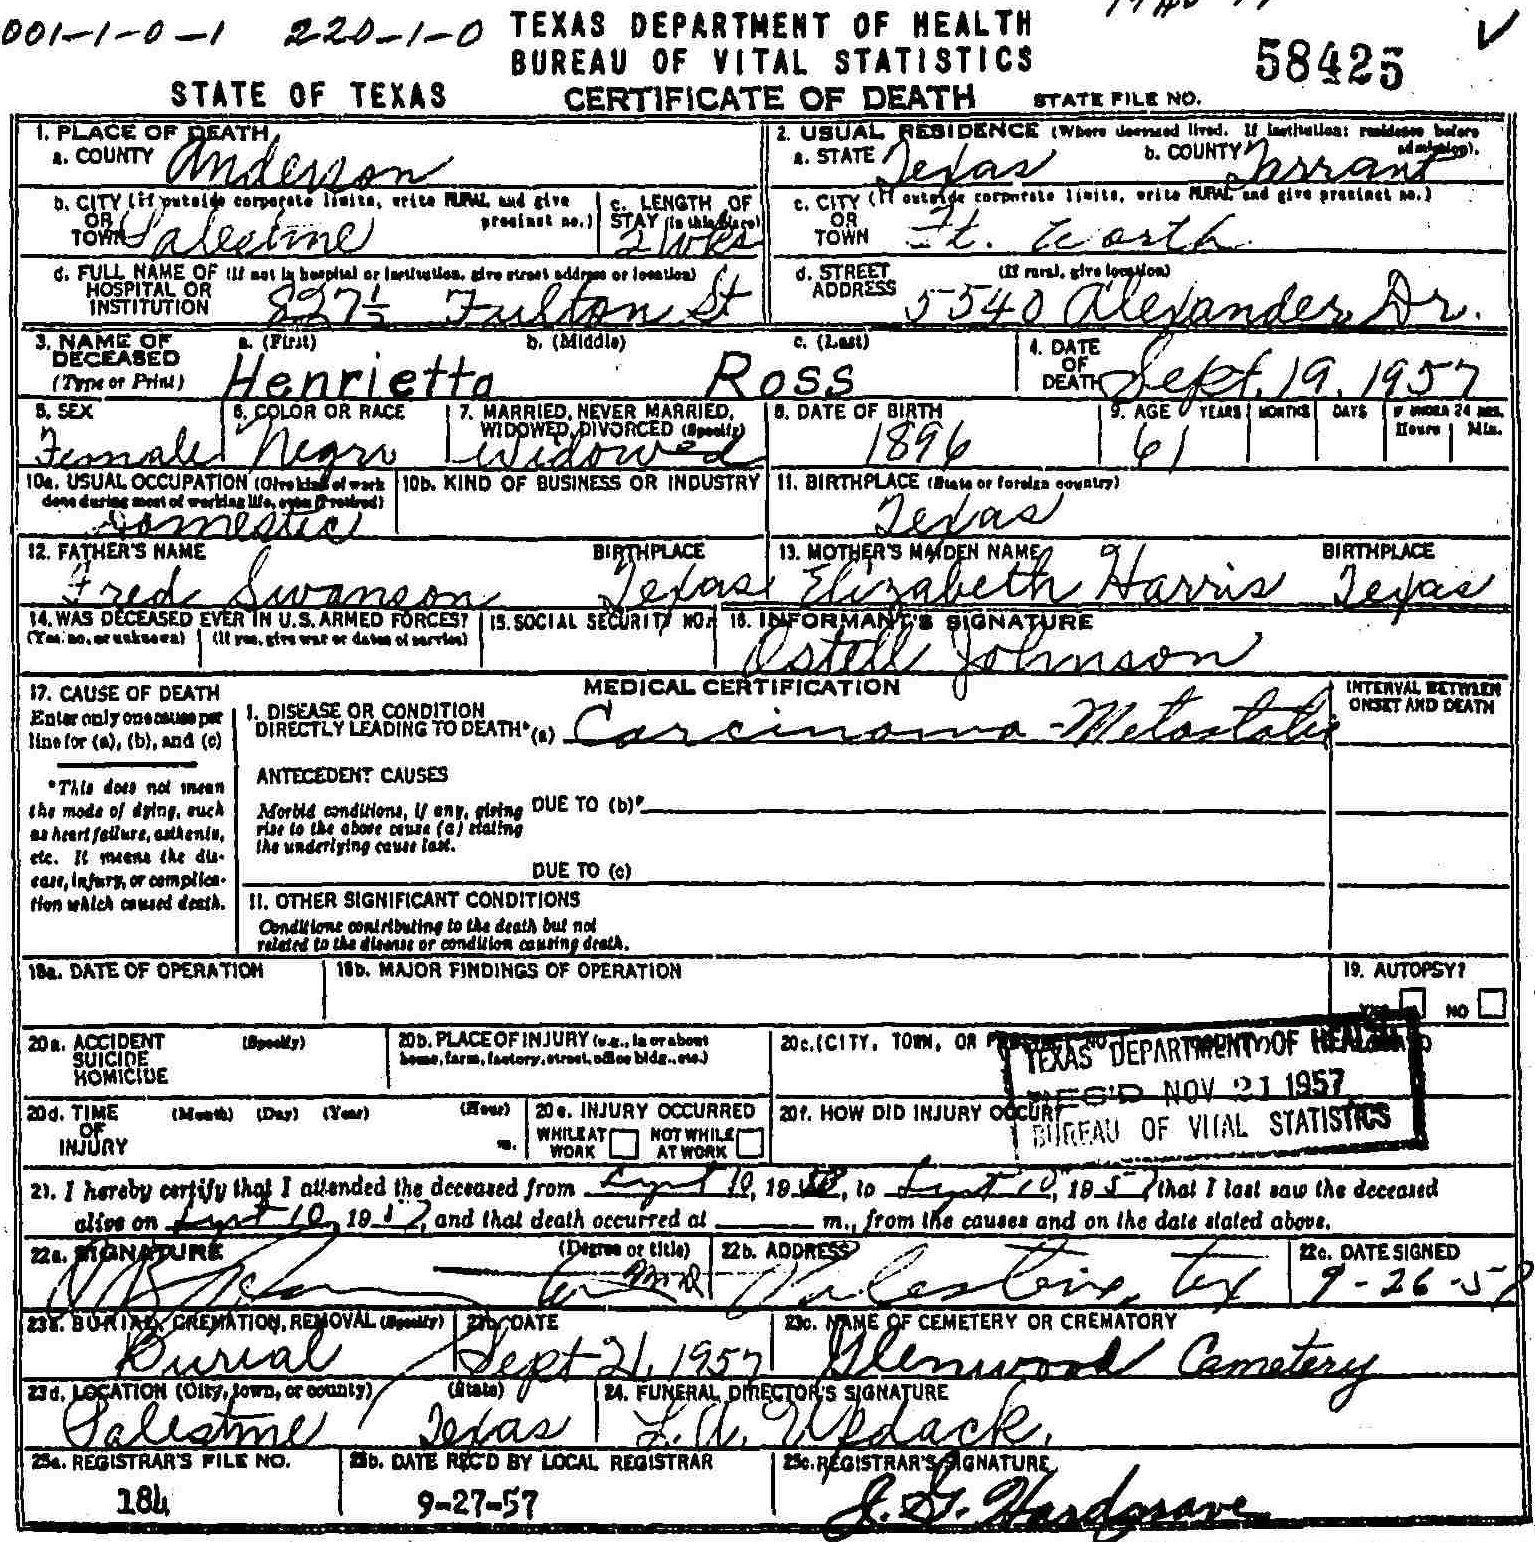 001-1-0-1 220-1-0 TEXAS DEPARTMENT OF HEALTH
BUREAU OF VITAL STATISTICS
58425
STATE OF TEXAS CERTIFICATE OF DEATH STATE FILE NO.
1. PLACE OF DEATH
a. COUNTY Anderson
2. USUAL RESIDENCE (Where deceased lived. If institution: residence before admission).
a. STATE Texas b. COUNTY Tarrant
b. CITY (if outside corporate limits, write RURAL and give precinct no.)
OR
TOWN Palestine
c. LENGTH OF
STAY (in this place)
2 wks
c. CITY (If outside corporate limits, write RURAL and give precinct no.)
OR
TOWN Ft. Worth
d. FULL NAME OF (If not in hospital or institution, give street address or location)
HOSPITAL OR
INSTITUTION 827½ Fulton St
d. STREET (If rural, give location)
ADDRESS 5540 Alexander Dr.
3. NAME OF a. (First) b. (Middle) c. (Last)
DECEASED
(Type or Print) Henrietta Ross
4. DATE
OF
DEATH Sept. 19, 1957
5. SEX
Female
6. COLOR OR RACE
Negro
7. MARRIED, NEVER MARRIED,
WIDOWED, DIVORCED (Specify)
Widowed
8. DATE OF BIRTH
1896
9. AGE YEARS MONTHS DAYS IF UNDER 24 HRS.
Hours Min.
61
10a. USUAL OCCUPATION (Give kind of work
done during most of working life, even if retired)
Domestic
10b. KIND OF BUSINESS OR INDUSTRY
11. BIRTHPLACE (State or foreign country)
Texas
12. FATHER'S NAME BIRTHPLACE
Fred Swanson Texas
13. MOTHER'S MAIDEN NAME BIRTHPLACE
Elizabeth Harris Texas
14. WAS DECEASED EVER IN U.S. ARMED FORCES?
(Yes, no, or unknown) (If yes, give war or dates of service)
15. SOCIAL SECURITY NO.
16. INFORMANT'S SIGNATURE
Ostell Johnson
17. CAUSE OF DEATH
Enter only one cause per
line for (a), (b), and (c)
*This does not mean
the mode of dying, such
as heart failure, asthenia,
etc. It means the dis-
ease, injury, or complica-
tion which caused death.
MEDICAL CERTIFICATION
INTERVAL BETWEEN
ONSET AND DEATH
I. DISEASE OR CONDITION
DIRECTLY LEADING TO DEATH* (a) Carcinoma - Metastatic
ANTECEDENT CAUSES
Morbid conditions, if any, giving
rise to the above cause (a) stating
the underlying cause last.
DUE TO (b)
DUE TO (c)
II. OTHER SIGNIFICANT CONDITIONS
Conditions contributing to the death but not
related to the disease or condition causing death.
18a. DATE OF OPERATION
18b. MAJOR FINDINGS OF OPERATION
19. AUTOPSY?
YES NO
20a. ACCIDENT (Specify)
SUICIDE
HOMICIDE
20b. PLACE OF INJURY (e.g., in or about
home, farm, factory, street, office bldg., etc.)
20c. (CITY, TOWN, OR PRECINCT NO.
TEXAS DEPARTMENT OF HEALTH
REC'D NOV 21 1957
BUREAU OF VITAL STATISTICS
20d. TIME (Month) (Day) (Year) (Hour)
OF
INJURY m.
20e. INJURY OCCURRED
WHILE AT NOT WHILE
WORK AT WORK
20f. HOW DID INJURY OCCUR?
21. I hereby certify that I attended the deceased from Sept 10, 19 to Sept 10, 1957, that I last saw the deceased
alive on Sept 10, 1957, and that death occurred at m., from the causes and on the date stated above.
22a. SIGNATURE (Degree or title)
22b. ADDRESS
Palestine, Tex
22c. DATE SIGNED
9-26-57
23a. BURIAL, CREMATION, REMOVAL (Specify)
Burial
23b. DATE
Sept 21, 1957
23c. NAME OF CEMETERY OR CREMATORY
Glenwood Cemetery
23d. LOCATION (City, town, or county) (State)
Palestine Texas
24. FUNERAL DIRECTOR'S SIGNATURE
L. A. Updack.
25a. REGISTRAR'S FILE NO.
184
25b. DATE REC'D BY LOCAL REGISTRAR
9-27-57
25c. REGISTRAR'S SIGNATURE
J. G. Hardgrave